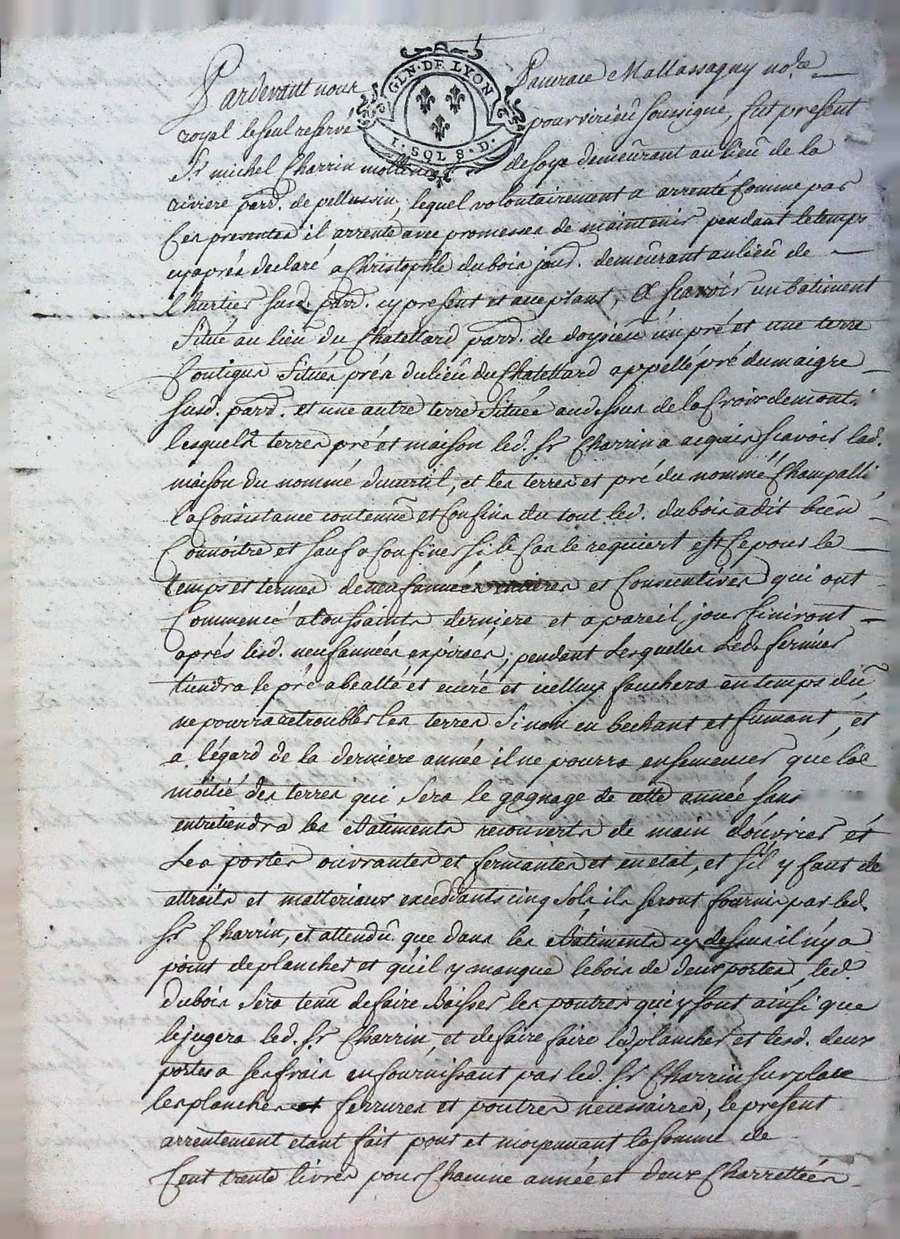 GLN. DE LYON
1. SOL 8. D.
Pardevant nous Pancrace Mallassagny no.re
royal le seul reservé pour virieû soussigné, fut present
Sr michel Charrin de soye demeûrant au lieû de la
riviere parr. de pellussin, lequel volontairement a arrenté Comme par
Ces presentes il arrente avec promesses de maintenir pendant le temps
cy aprés declaré a Christophle dubois jour. demeûrant au lieû de
lhurtier susd. parr. cy present et acceptant, a Scavoir un batiment
Situé au lieu du Chatellard parr. de doysieu un pré et une terre
Contigus Situés prés du lieû du Chatellard appellé pré du maigre
susd. parr. et une autre terre Située au dessus de la Croix demont
lesquels terres pré et maison led. Sr Charrin a acquis scavoir lad.
maison du nommé ducurtil, et les terres et pré du nommé Champalli
la Consistance contenuë et Confins du tout led. dubois a dit bien
Connoitre et sauf a Confiner si le Cas le requiert et ce pour le
temps et termes de neuf années et Consecutives qui ont
Commencé a toussaints derniere et a pareil jour finiront
aprés lesd. neuf années expirées, pendant lesquelles led. fermier
tiendra le pré abealté et curé et icelluy fauchera en temps dû
ne pourra retroubler les terres sinon en bechant et fumant, et
a légard de la derniere année il ne pourra ensemencer que la
moitié des terres qui sera le gagnage de cette année sans
entretiendra les Batiments recouverts de main d'ouvrier et
les portes ouvrantes et fermantes et en etat, et s'il y faut de
attraits et matteriaux excedants cinq sols ils seront fournis par led.
Sr Charrin, et attendû que dans les Batiments cy dessus il n'y a
point de plancher et qu'il y manque le bois de deux portes led.
dubois sera tenû de faire Baisser les poutres qui y sont ainsi que
le jugera led. Sr Charrin, et de faire faire led. plancher et lesd. deux
portes a ses frais en fournissant par led. Sr Charrin sur place
les planches et serrures et poutres necessaires, le present
arrentement etant fait pour et moyennant la somme de
Cent trente livres pour Chacune année et deux Charrettées